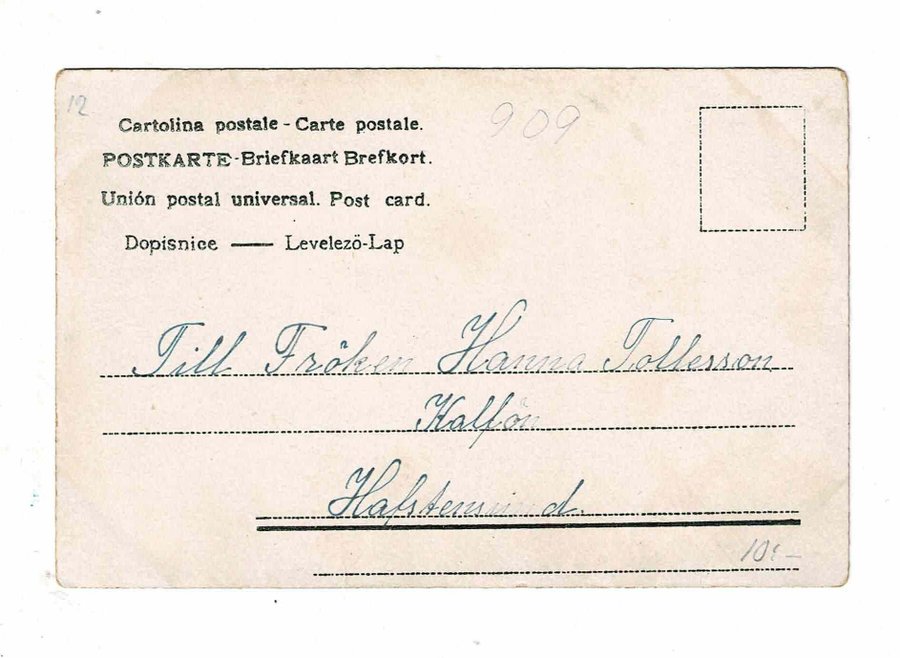 12
Cartolina postale - Carte postale.
909
POSTKARTE-Briefkaart Brefkort.
Unión postal universal. Post card.
Dopisnice — Levelező-Lap
Till Fröken Hanna Tollesson
Kalfön
Hafstensund.
10:-